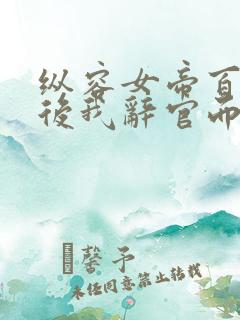 纵容女帝百
後我辭官而
馨予
未经同意禁止转载